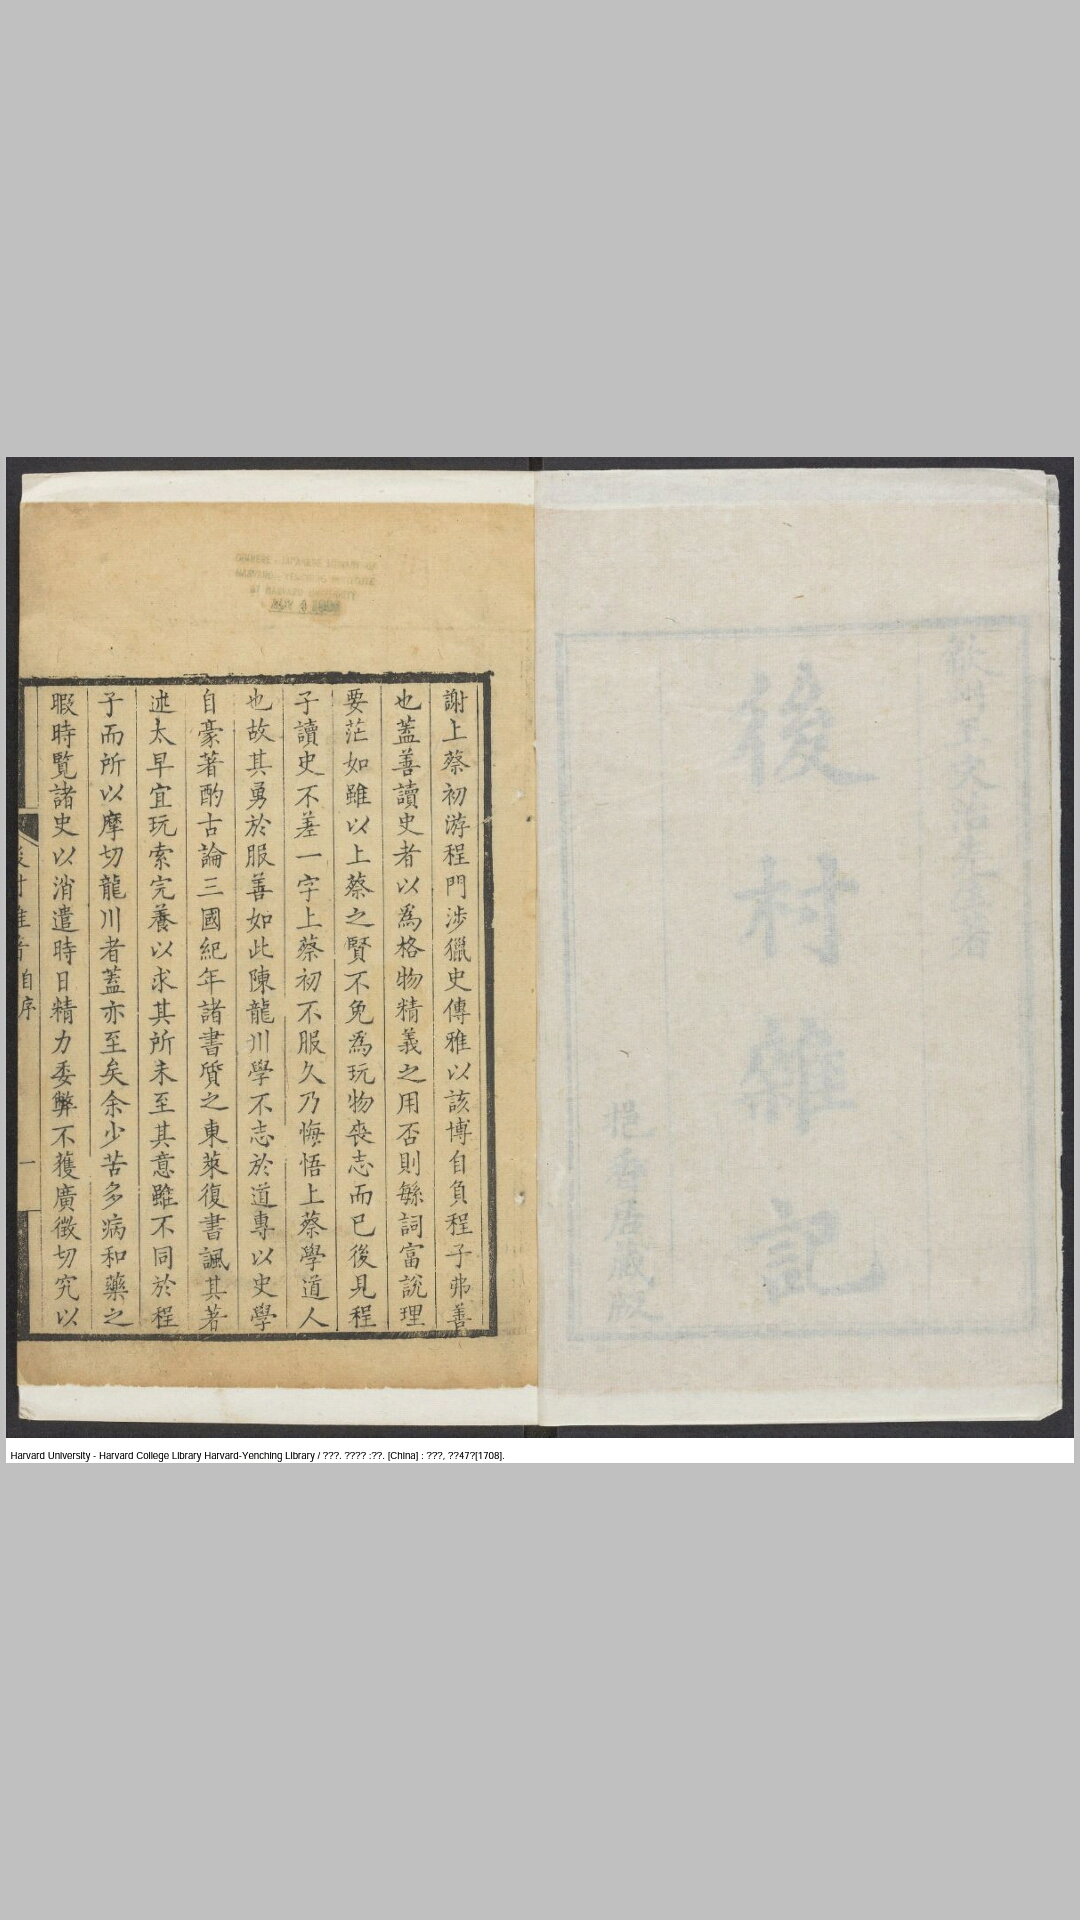 後村雜記
挹香居藏版
謝上蔡初游程門涉獵史傳雅以該博自負程子弗善
也蓋善讀史者以爲格物精義之用否則緐詞富說理
要茫如雖以上蔡之賢不免爲玩物喪志而已後見程
子讀史不差一字上蔡初不服久乃悔悟上蔡學道人
也故其勇於服善如此陳龍川學不志於道專以史學
自豪著酌古論三國紀年諸書質之東萊復書諷其著
述太早宜玩索完養以求其所未至其意雖不同於程
子而所以摩切龍川者蓋亦至矣余少苦多病和藥之
暇時覽諸史以消遣時日精力委弊不獲廣徵切究以
自序
一
Harvard University - Harvard College Library Harvard-Yenching Library / ???. ???? :??. [China] : ???, ??47?[1708].